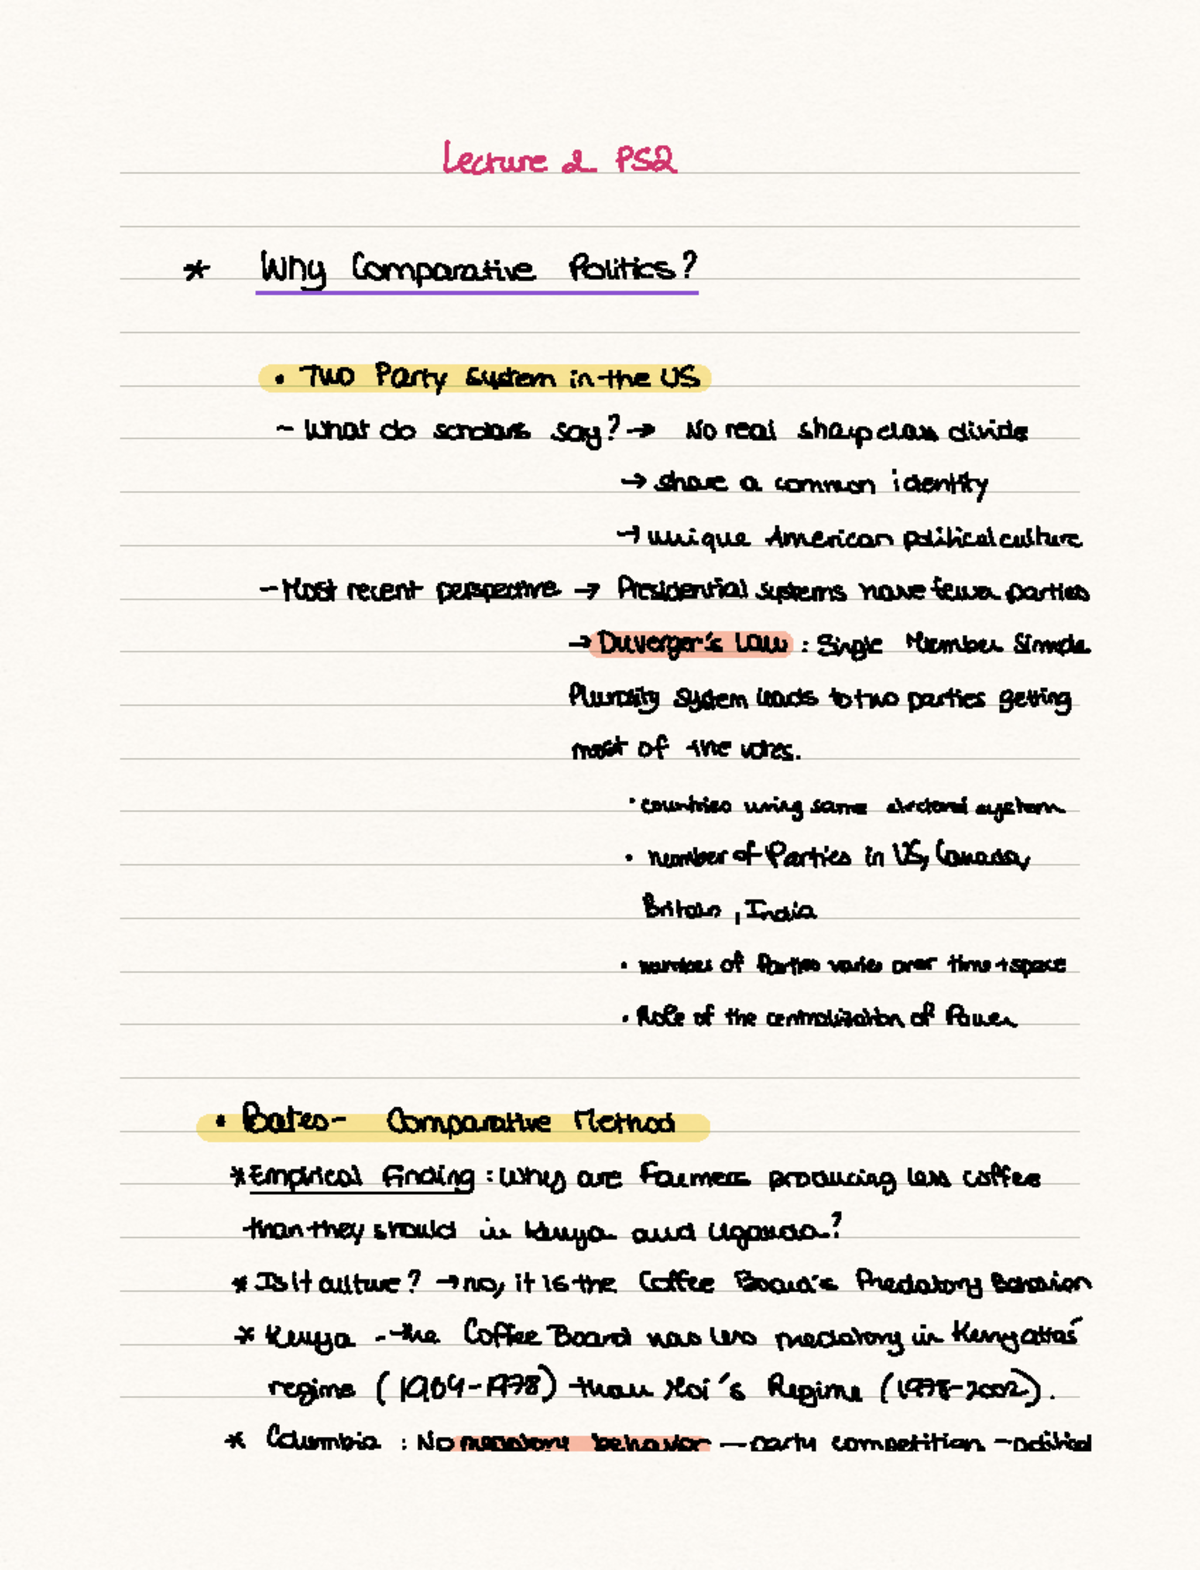 Lecture 2 PS2
* Why Comparative Politics?
• Two Party System in the US
- What do scholars say? → No real sharp class divide
→ share a common identity
→ unique American political culture
- Most recent perspective → Presidential systems have fewer parties
→ Duverger's Law : Single Member Simple
Plurality System leads to two parties getting
most of the votes.
• countries using same electoral system
• number of Parties in US, Canada,
Britain, India
• number of Parties varies over time + space
• Role of the centralization of Power
• Bates - Comparative Method
* Empirical Finding : Why are Farmers producing less coffee
than they should in Kenya and Uganda?
* Is it culture? → no, it is the Coffee Board's Predatory Behavior
* Kenya - the Coffee Board was less predatory in Kenyattas'
regime (1964-1978) than Moi's Regime (1978-2002).
* Columbia : No predatory behavior - party competition - political